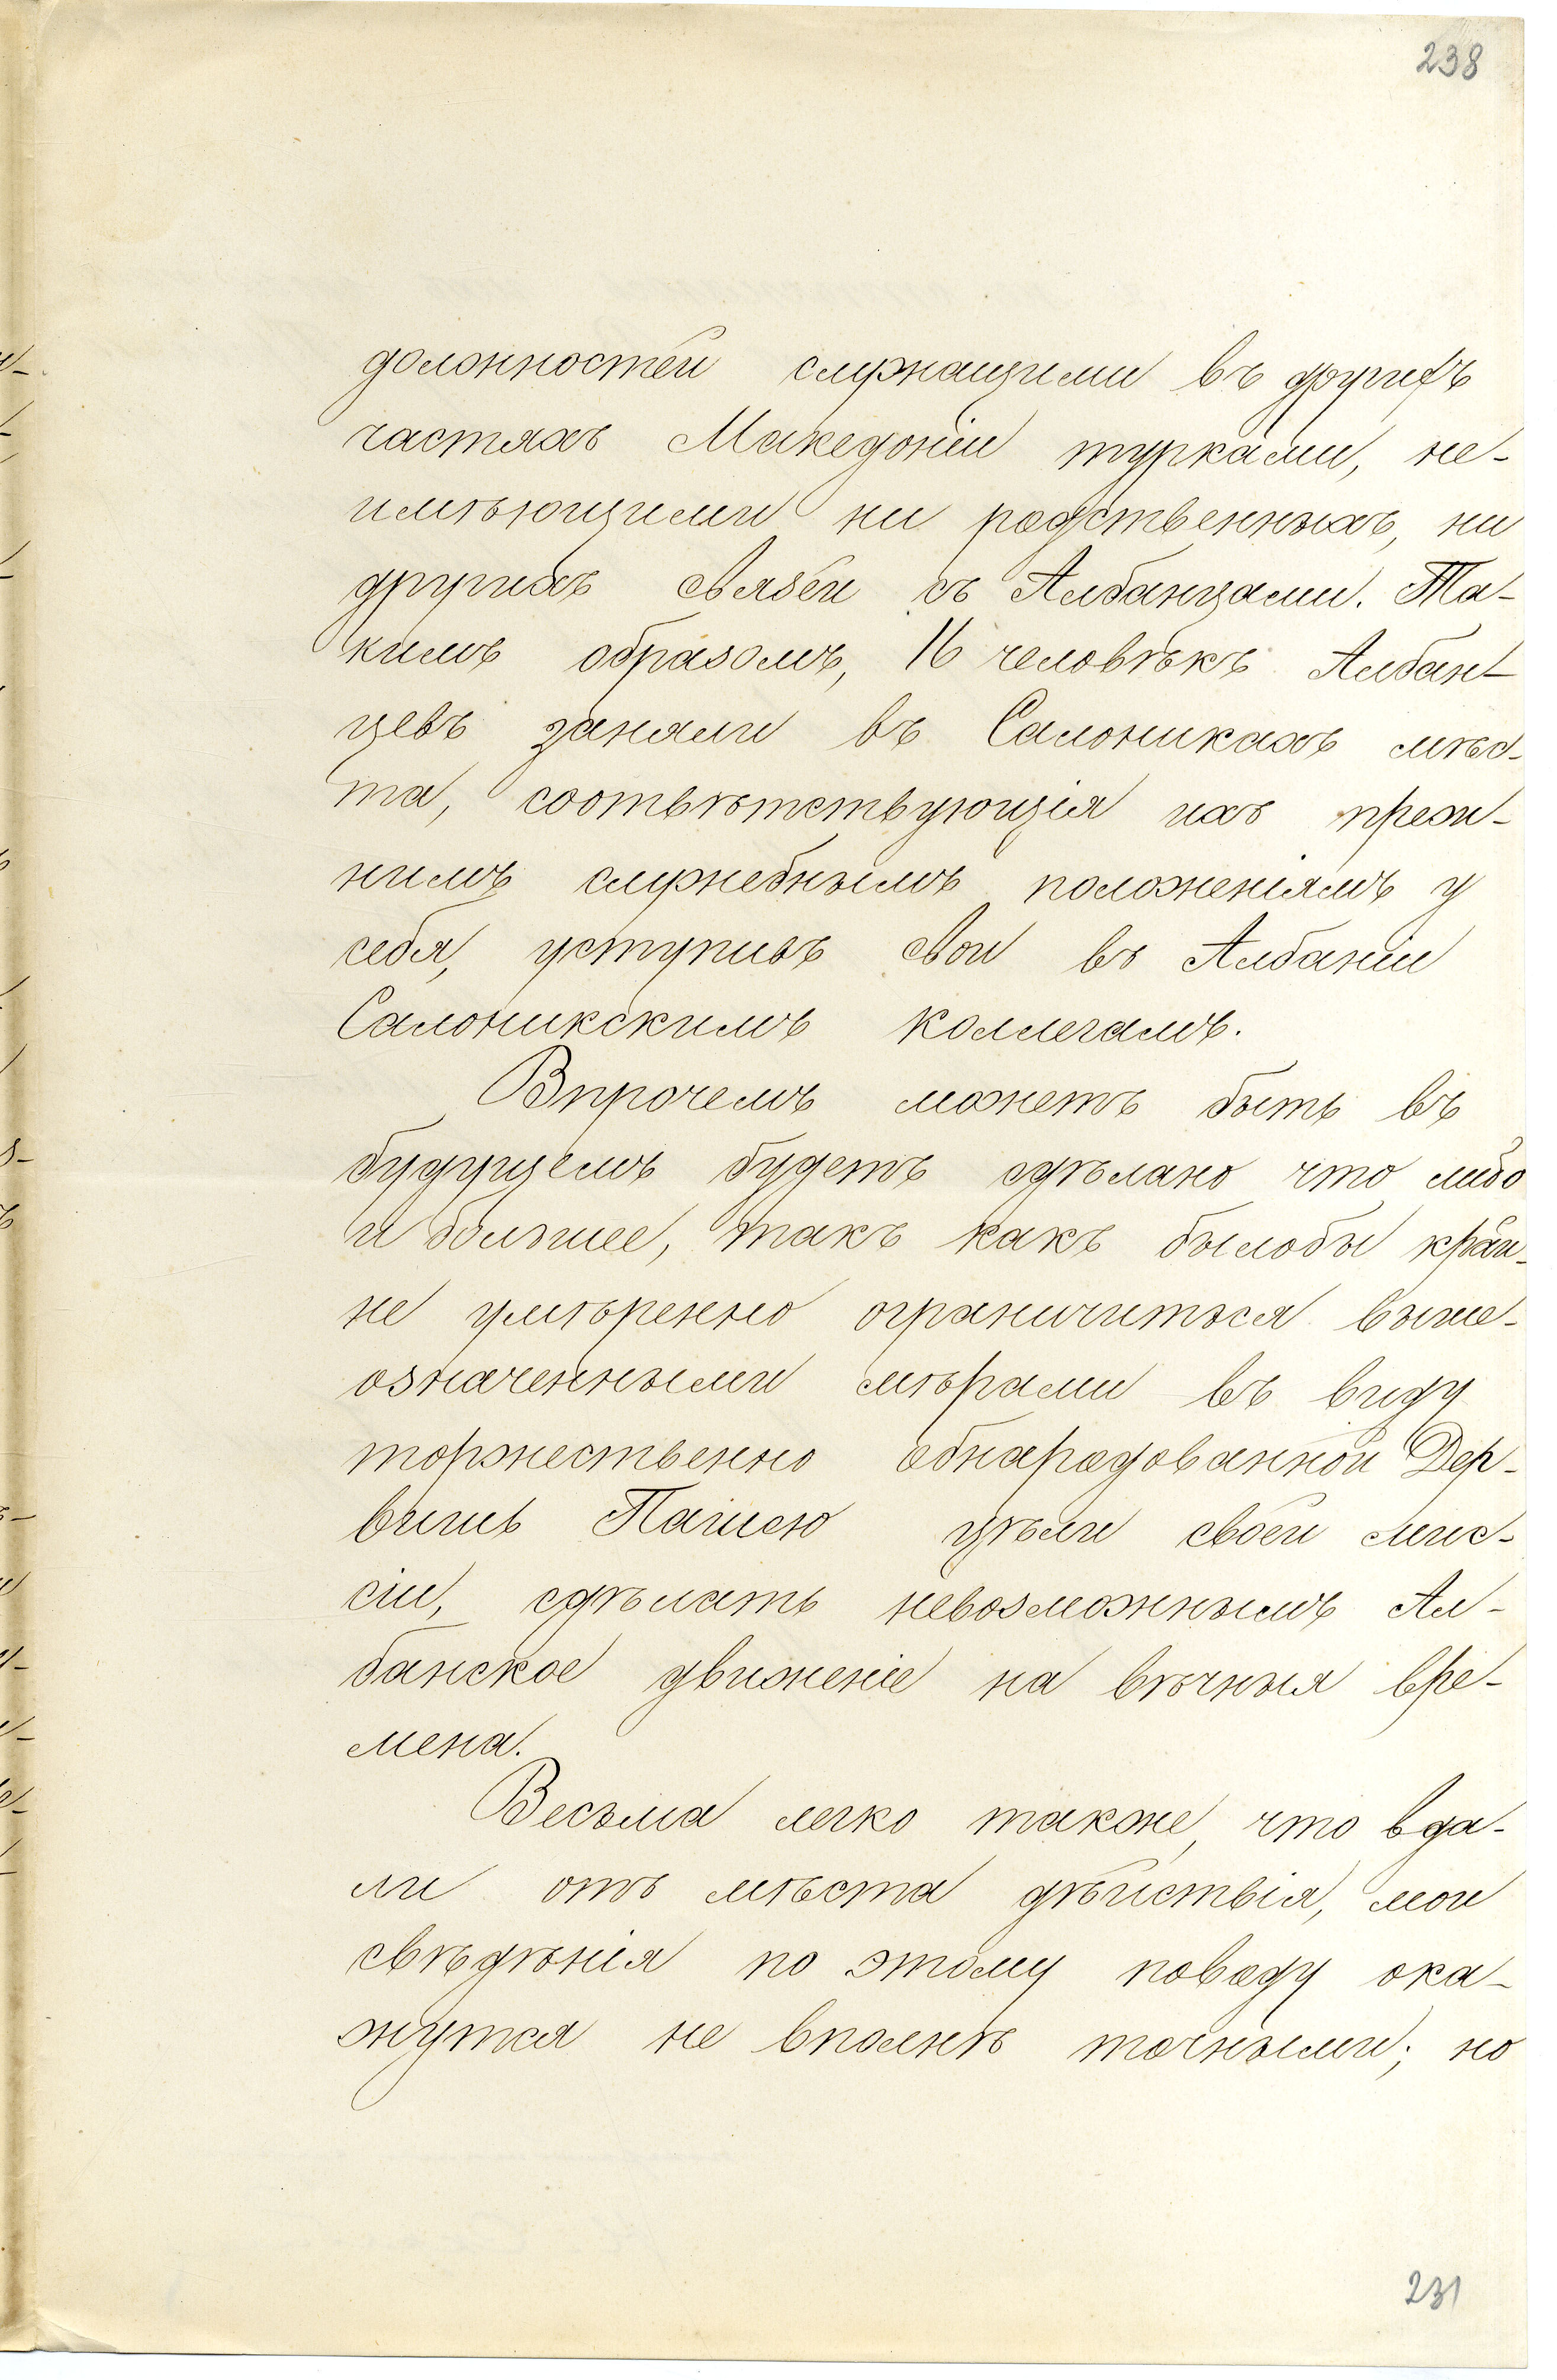 238
должностей служащими въ другихъ
частяхъ Македоніи турками, не-
имѣющими ни родственныхъ, ни
другихъ связей съ Албанцами. Та-
кимъ образомъ, 16 человѣкъ Албан-
цевъ заняли въ Салоникахъ мѣс-
та, соотвѣтствующія ихъ преж-
нимъ служебнымъ положеніямъ у
себя, уступивъ свои въ Албаніи
Салоникскимъ коллегамъ.
Впрочемъ можетъ быть въ
будущемъ будетъ сдѣлано что либо
и большее, такъ какъ былобы край-
не умѣренно ограничиться выше-
означенными мѣрами въ виду
торжественно обнародованной Дер-
вишъ Пашею цѣли своей мис-
сіи, сдѣлать невозможнымъ Ал-
банское движеніе на вѣчныя вре-
мена.
Весьма легко также, что вда-
ли отъ мѣста дѣйствія, мои
свѣдѣнія по этому поводу ока-
жутся не вполнѣ точными; но
231